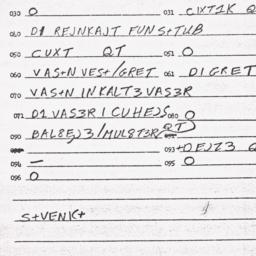 030 O 031 CIXTIK Q
040 D1 REJNKAJT FUNS+TUB
050 CUXT QT 051 O
060 VAS+N VES+/GRET 061 DIGRET
070 VAS+N INKALT3VAS3R
071 D1VAS3R1CUHEJS 080 O
090 BAL8EJ3/MUL8T3R/QT
093 +DEJZ3 Q
094 — 095 O
096 O
S+VENK+